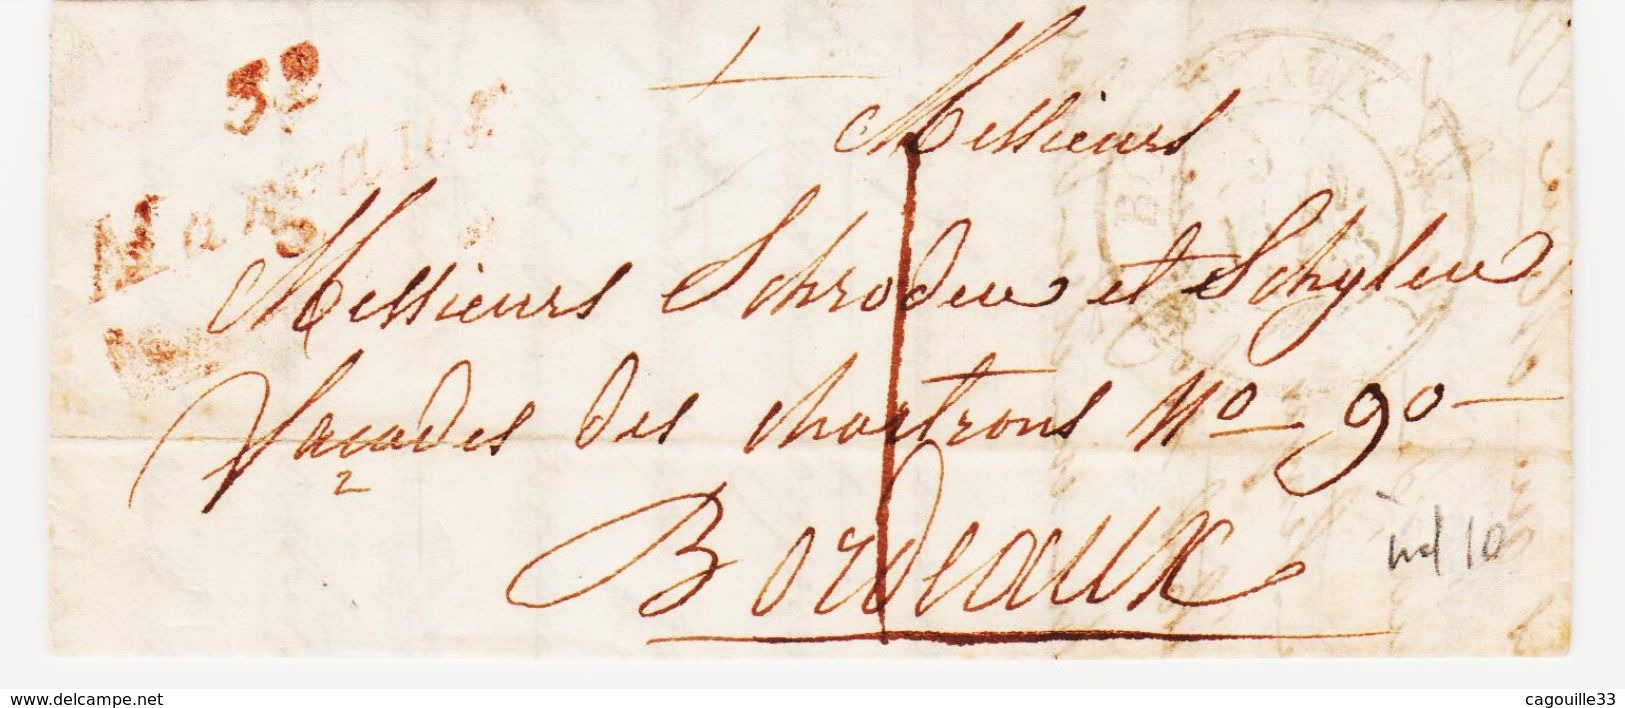 52
Messieurs
Messieurs Schroder et Schyler
façades des chartrons No 90
2
Bordeaux
ind 10
www.delcampe.net
cagouille33